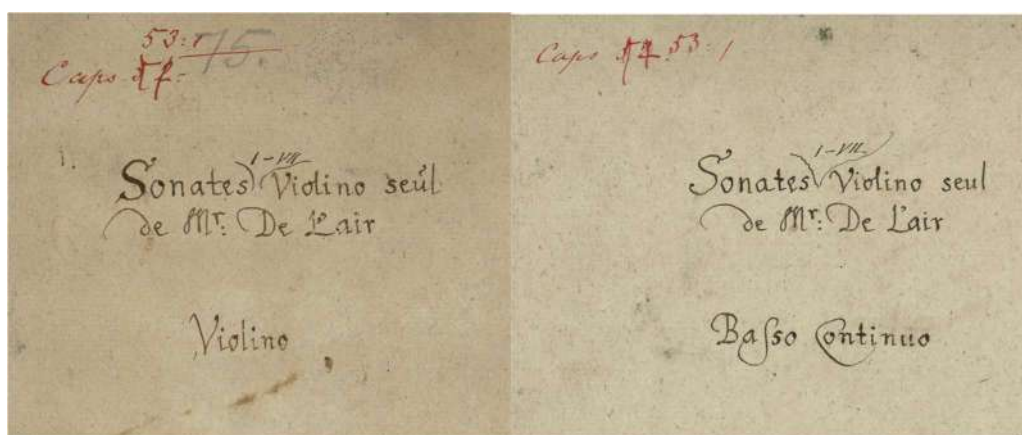 53:1
75.
Caps
1.
I-VII
Sonates Violino seul
de Mr: De L'air
Violino
Caps 53:1
I-VII.
Sonates Violino seul
de Mr: De L'air
Baſso Continuo